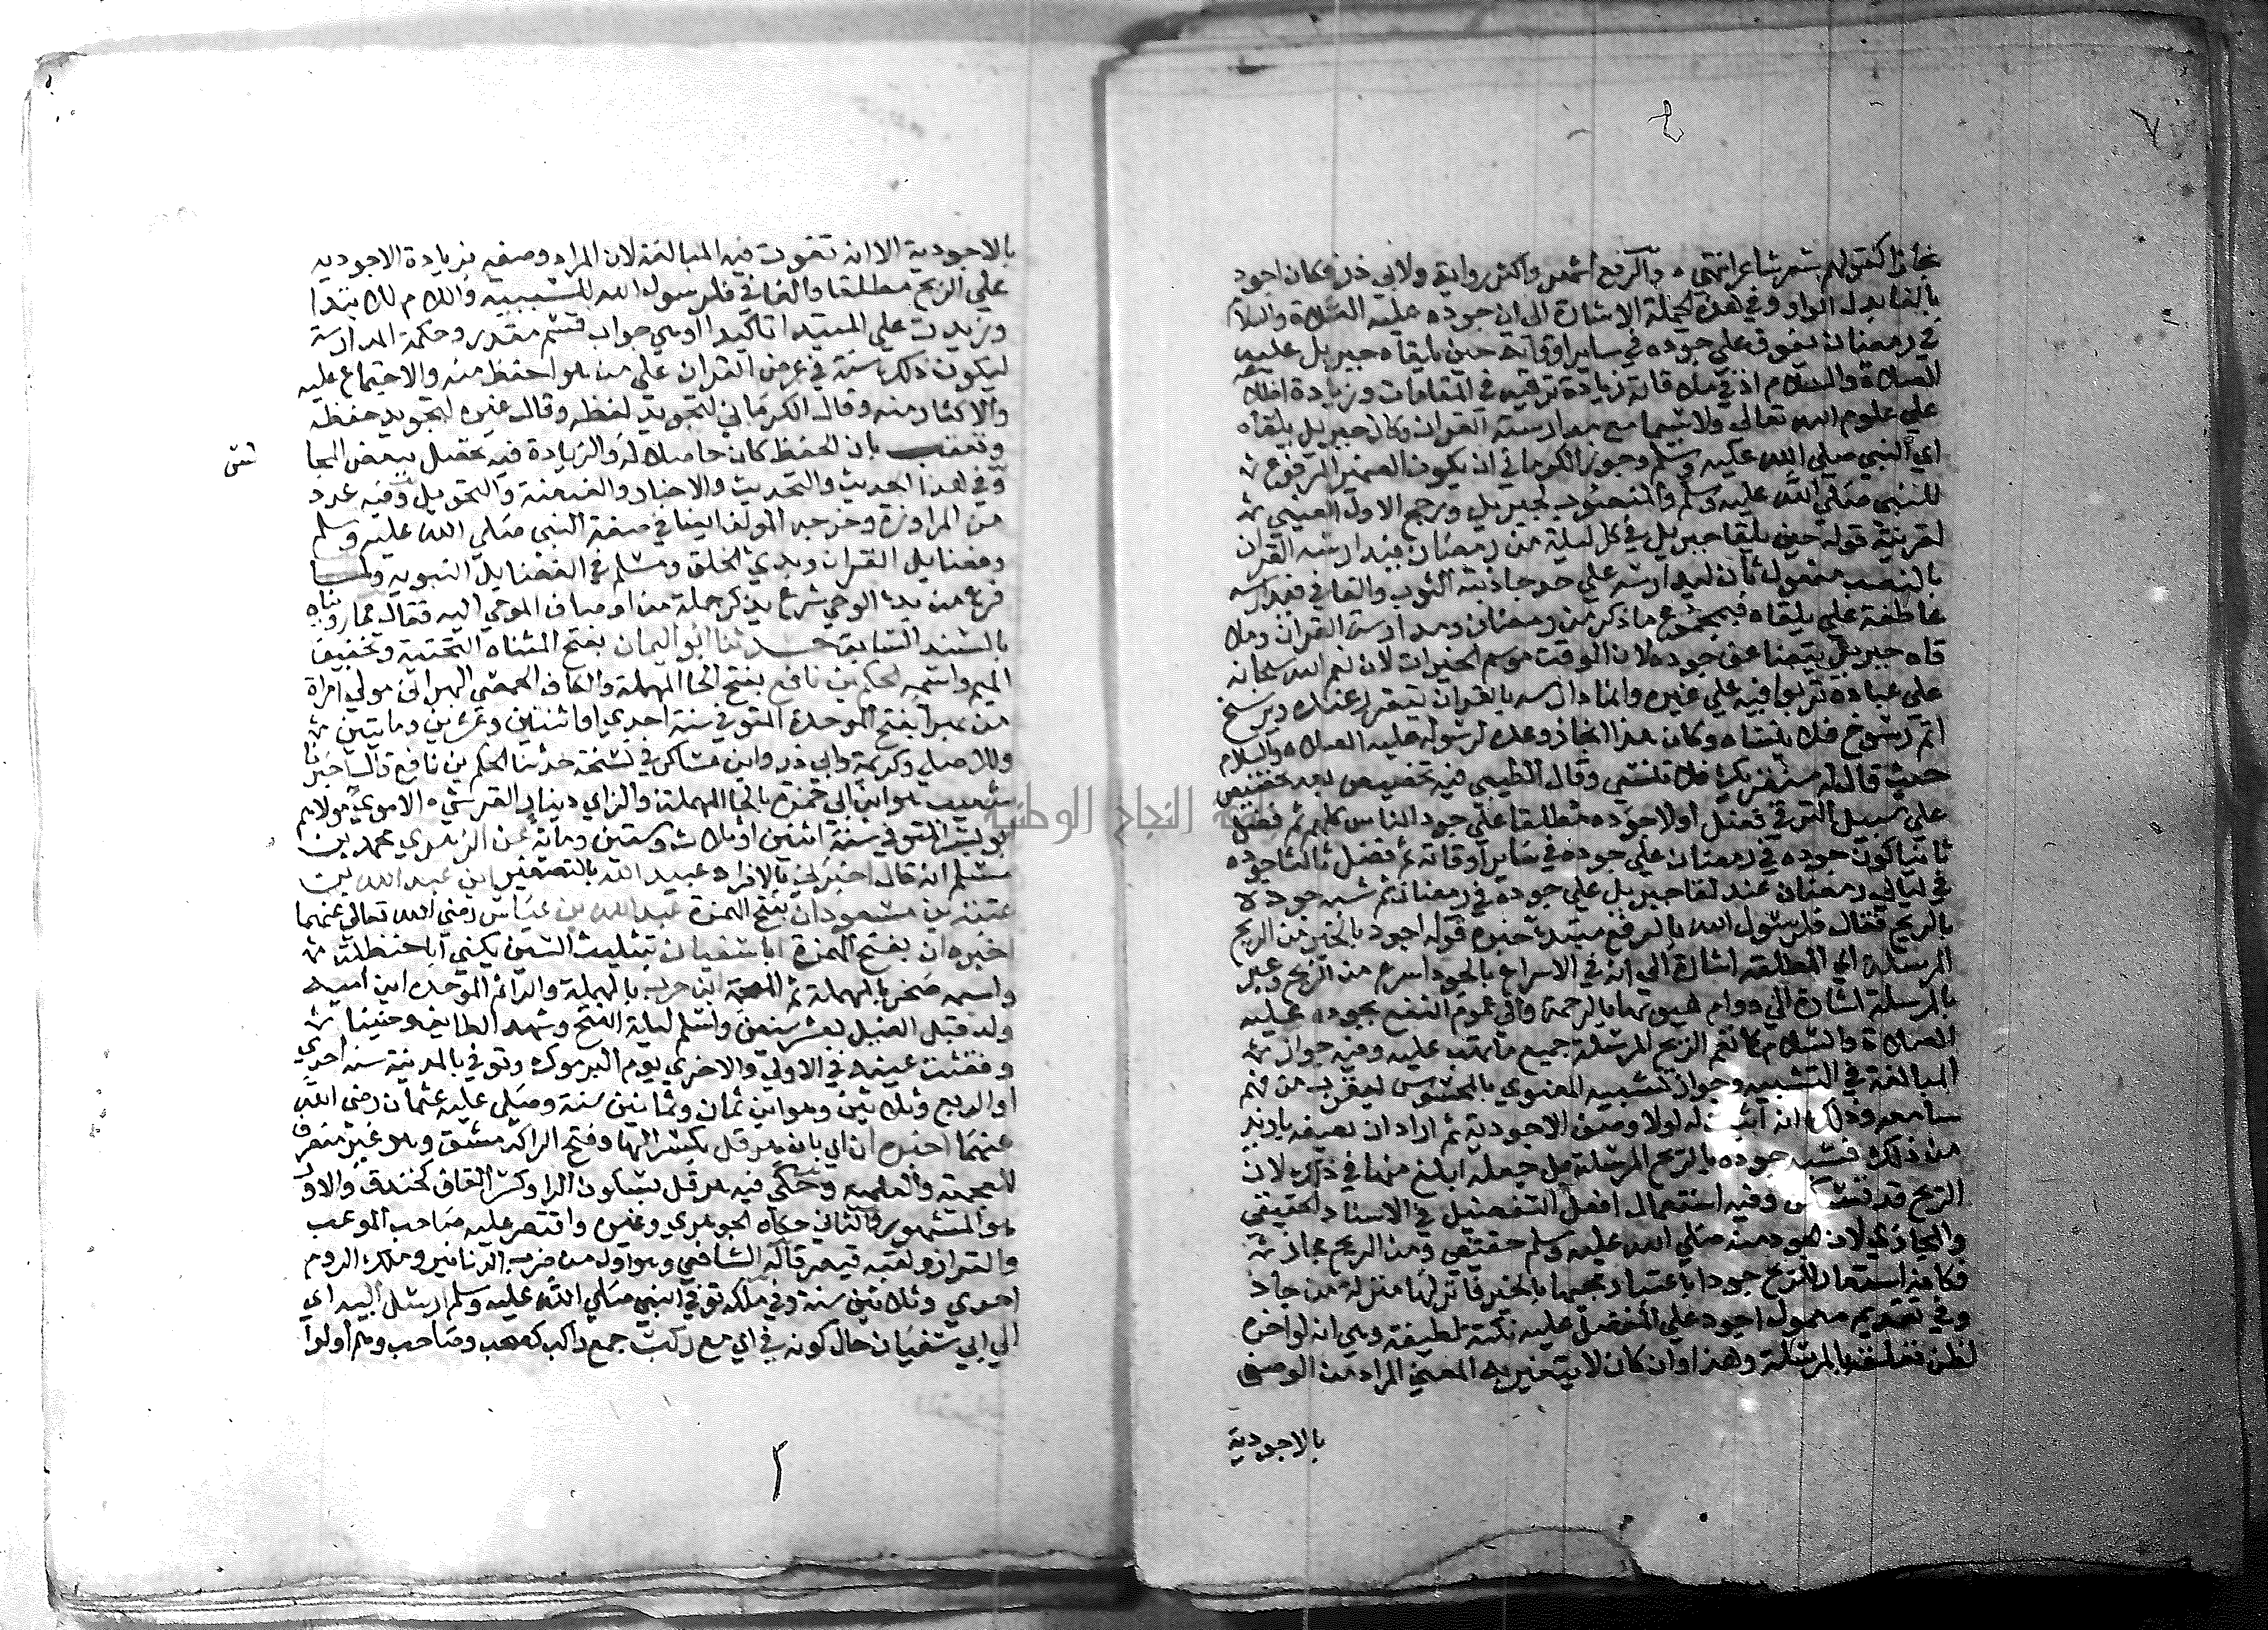 مجازا كقولهم شعر شاعر انتهي والرفع اشهر واكثر رواية ولابي ذر فكان اجود
بالفا بدل الواو وفي هذه الجملة الاشارة الى ان جوده عليه الصلاة والسلام
في رمضان يفوق علي جوده في ساير اوقاته حين يلقاه جبريل عليه
الصلاة والسلام اذ في ملاقاته زيادة ترقيه في المقامات وزيادة اطلاعه
علي علوم الله تعالى ولاسيما مع مدارسته القران وكان جبريل يلقاه
اي النبي صلي الله عليه وسلم وجوز الكرماني ان يكون الضمير المرفوع
للنبي صلي الله عليه وسلم والمنصوب لجبريل ورجح الاول العيني
لقرينة قوله حين يلقا جبريل في كل ليلة من رمضان فيدارسه القران
بالنصب مفعول ثان ليدارسه علي حد جاذبته الثوب والفا في فيدارسه
عاطفة علي يلقاه فبمجموع ما ذكر من رمضان ومدارسة القران وملا
قاه جبريل يتضاعف جوده لان الوقت موسم الخيرات لان نعم الله سبحانه
علي عباده تربوا فيه علي غيره وانما دارسه بالقران ليتقرر عنده ويرسخ
اتم رسوخ فلا ينساه وكان هذا انجاز وعده لرسوله عليه الصلاه والسلام
حيث قال له سنقريك فلا تنسي وقال الطيبي فيه تخصيص بعد تخصيص
علي سبيل الترقي فضل اولا جوده مطلقا علي جود الناس كلهم ثم فضل
ثانيا كون جوده في رمضان علي جوده في ساير اوقاته ثم فضل ثالثا جوده
في ليالي رمضان عند لقا جبريل علي جوده في رمضان ثم شبه جوده
بالريح فقال فلرسول الله بالرفع مبتدا خبره قوله اجود بالخير من الريح
المرسلة اي المطلقه اشارة الي انه في الاسراع بالجود اسرع من الريح وعبر
بالمرسلة اشارة الي دوام هبوبها بالرحمة والي عموم النفع بجوده عليه
الصلاة والسلام كما تعم الريح المرسلة جميع ما تهب عليه وفيه جواز
المبالغة في التشبيه وجواز تشبيه المعنوي بالمحسوس ليقرب من فهم
سامعه وذلك انه اثبت له اولا وصف الاجودية ثم اراد ان يصفه بازيد
من ذلك فشبه جوده بالريح المرسلة بل جعله ابلغ منها في ذلك لان
الريح قد تسكن وفيه استعمال افعل التفضيل في الاسناد الحقيقي
والمجازي لان الجود منه صلي الله عليه وسلم حقيقي ومن الريح مجاز
فكانه استعار للريح جودا باعتبار مجيها بالخير فانزلها منزلة من جاد
وفي تقديم معمول اجود علي المفضل عليه نكتة لطيفة وهي انه لو اخره
لظن تعلقه بالمرسلة وهذا وان كان لا يتغير به المعني المراد من الوصف
بالاجودية
بالاجودية الا انه تفوت فيه المبالغة لان المراد وصفه بزيادة الاجوديه
علي الريح مطلقا والفا في فلرسول الله للسببيه واللام للابتدا
وزيدت علي المبتدا تاكيدا او هي جواب قسم مقدر وحكمة المدارسة
ليكون ذلك سنة في عرض القران علي من هو احفظ منه والاجتماع عليه
والاكثار منه وقال الكرماني لتجويد لفظه وقال غيره لتجويد حفظه
وتعقب بان الحفظ كان حاصلا له والزيادة فيه تحصل ببعض المجا
لس
وفي هذا الحديث والتحديث والاخبار والعنعنة والتحويل وفيه عدد
من المراوزة وخرجه المولف ايضا في صفة النبي صلي الله عليه وسلم
وفضايل القران وبدي الخلق ومسلم في الفضايل النبويه ولما
فرغ من بدء الوحي شرع يذكر جملة من اوصاف الموحي اليه فقال مما رويناه
بالسند السابق حدثنا ابو اليمان بفتح المثناه التحتية وتخفيف
الميم واسمه الحكم بن نافع بفتح الحا المهملة والكاف الحمصي البهراني مولي امراة
من بهرا بفتح الموحدة المتوفي سنة احدي او اثنتين وعشرين ومايتين
وللاصيلي وكريمة وابي ذر وابن عساكر في نسخة حدثنا الحكم بن نافع قال اخبرنا
شعيب هو ابن ابي حمزة بالحا المهملة والزاي دينار القرشي الاموي مولاهم
ابو بشر المتوفي سنة اثنين او ثلاث وستين وماية عن الزهري محمد بن
مسلم انه قال اخبرني بالافراد عبيد الله بالتصغير ابن عبد الله بن
عتبة بن مسعود ان بفتح الهمزة عبد الله بن عباس رضي الله تعالي عنهما
اخبره ان بفتح الهمزة ابا سفيان بتثليث السين يكني ابا حنظلة
واسمه صخر بالمهملة ثم المعجمة ابن حرب بالمهملة والرا ثم الموحده ابن اميه
ولد قبل الفيل بعشر سنين واسلم ليلة الفتح وشهد الطايف وحنينا
وفقئت عينه في الاولي والاخري يوم اليرموك وتوفي بالمدينة سنه احدي
او اربع وثلاثين وهو ابن ثمان وثمانين سنة وصلي عليه عثمان رضي الله
عنهما اخبره ان اي بانه هرقل بكسر الها وفتح الرا كدمشق وهو غير منصرف
للعجمية والعلميه وحكي فيه هرقل بسكون الرا وكسر القاف كخندف والاول
هو المشهور والثاني حكاه الجوهري وغيره واقتصر عليه صاحب الموعب
والقزاز ولقبه قيصر قاله الشافعي وهو اول من ضرب الدنانير وملك الروم
احدي وثلاثين سنة وفي ملكه توفي النبي صلي الله عليه وسلم ارسل اليه اي
الي ابي سفيان حال كونه في اي مع ركب جمع راكب كصحب وصاحب وهم اولوا